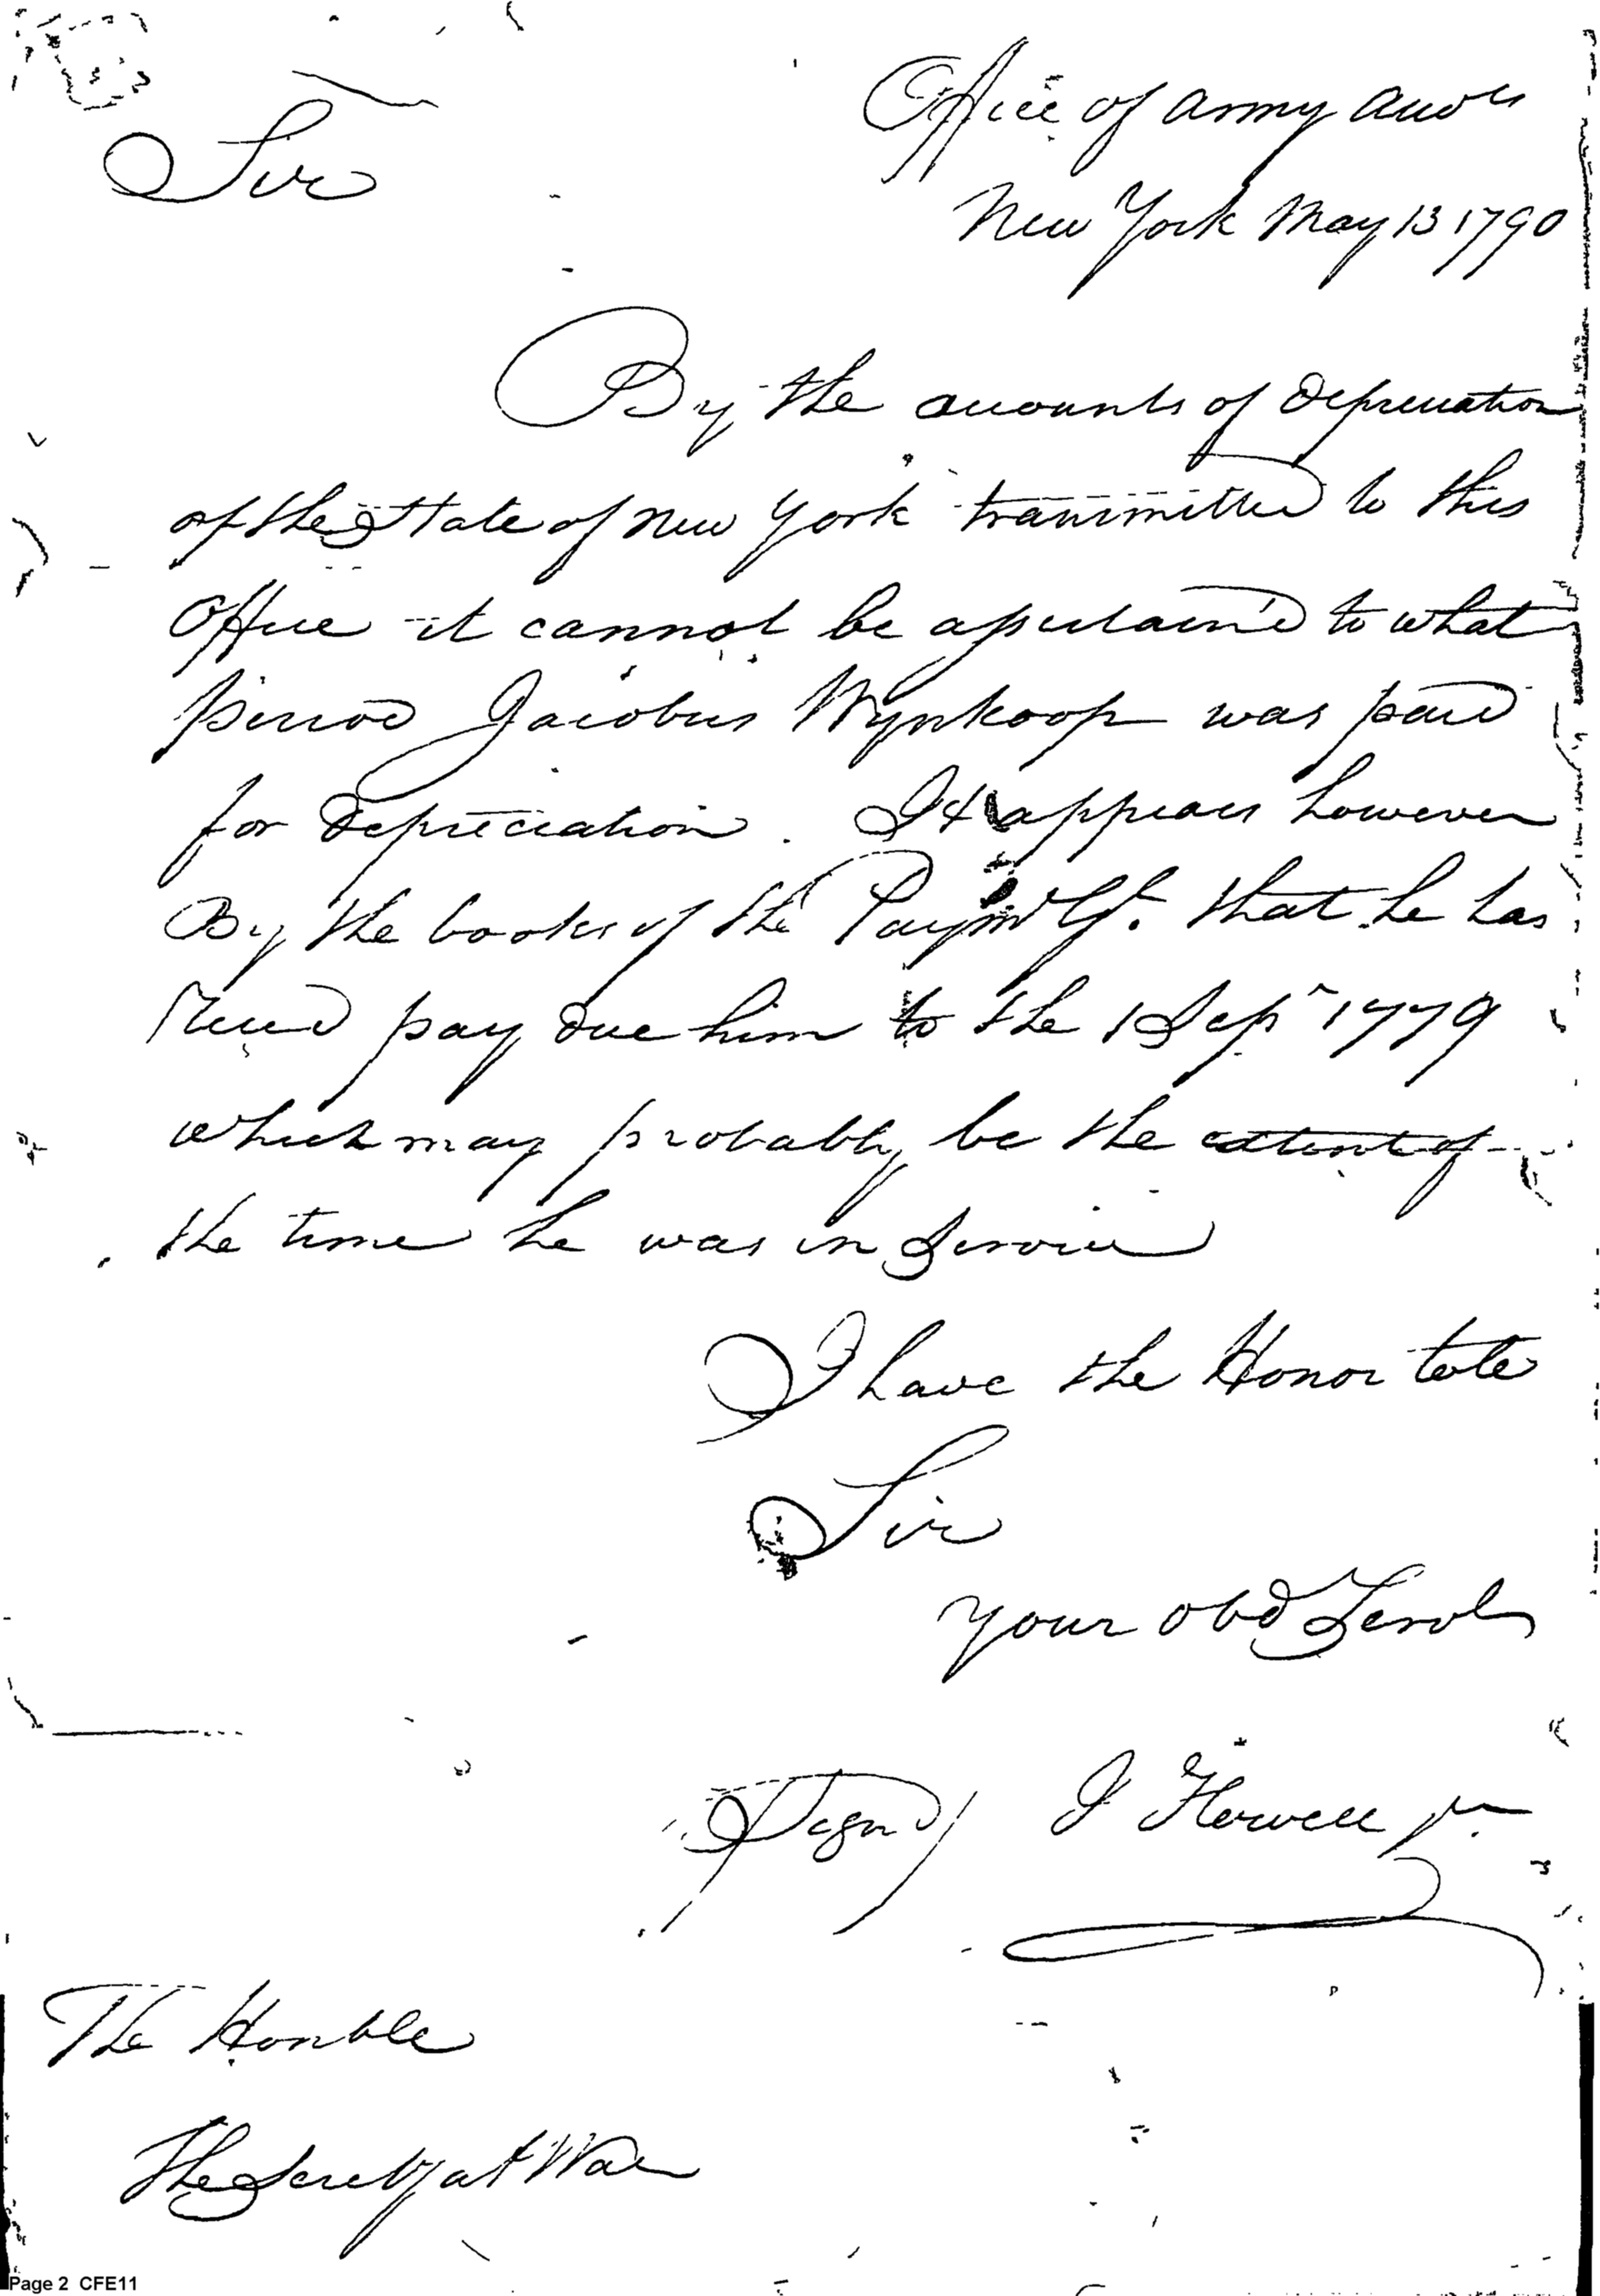 Office of Army Accots
Sir
New York May 13 1790
By the accounts of Depreciation
of the State of New York transmitted to this
Office it cannot be ascertain'd to what
period Jacobus Wynkoop was paid
for Depreciation. It appears however
By the books of the Paymr Gl. that he has
Reced pay due him to the 1 Sepr 1779
which may probably be the extent of
the time he was in Service
I have the Honor to be
Sir
your obd Servt
Signd J Howell jr
The Honble
The Secrety at War
Page 2 CFE11